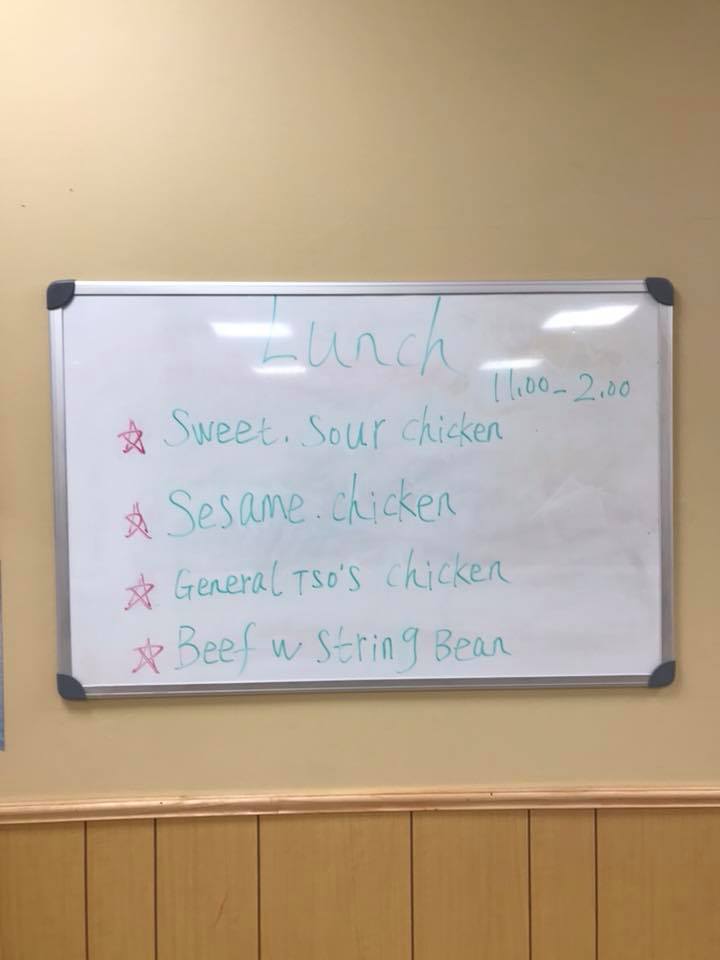 Lunch
11.00-2.00
Sweet. Sour chicken
Sesame. chicken
General TSO'S chicken
Beef w String Bean